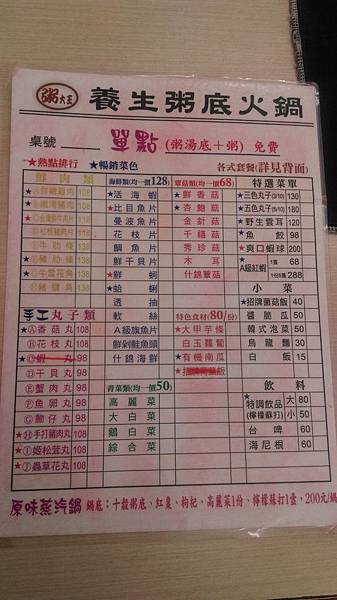 粥大王
養生粥底火鍋
桌號 單點(粥湯底+粥)免費
★熱點排行 ★暢銷菜色 各式套餐(詳見背面)
鮮肉類
海鮮類(均一價128)
★活海蝦
★比目魚片
曼波魚片
花枝片
鯛魚片
鮮干貝片
★鮮蚵
★蛤蜊
透抽
軟絲
A級旗魚片
鮮剝鮭魚頭
什錦海鮮
青菜類(均一價50)
高麗菜
大白菜
鵝白菜
綜合菜
蕈菇類(均一價68)
★鮮香菇
★杏鮑菇
金針菇
千禧菇
秀珍菇
木耳
什錦蕈菇
特色食材(80/份)
★大甲芋條
白玉蘿蔔
★有機南瓜
特選菜單
★三色丸子(3/10) 130
★五色丸子(5/10) 180
★野生雲耳 120
★魚餃 90
★爽口蝦球 200
★A級紅蝦 1隻 68
288
小菜
★招牌蔴菇飯 40
醬脆瓜 50
韓式泡菜 50
烏龍麵 50
白飯 15
飲料
★特調飲品(檸檬蘇打) 大 80
小 50
台啤 60
海尼根 60
手工丸子類
★Ⓐ香菇丸 108
Ⓑ花枝丸 108
★Ⓒ蝦丸 98
Ⓓ干貝丸 98
Ⓔ蟹肉丸 98
Ⓕ魚卵丸 98
Ⓖ魩仔丸 98
★Ⓗ手打豬肉丸 108
★Ⓘ姬松茸丸 108
★Ⓙ蟲草花丸 108
原味蒸汽鍋 鍋底:十穀粥底、紅棗、枸杞、高麗菜1份、檸檬蘇打1壺,200元/鍋